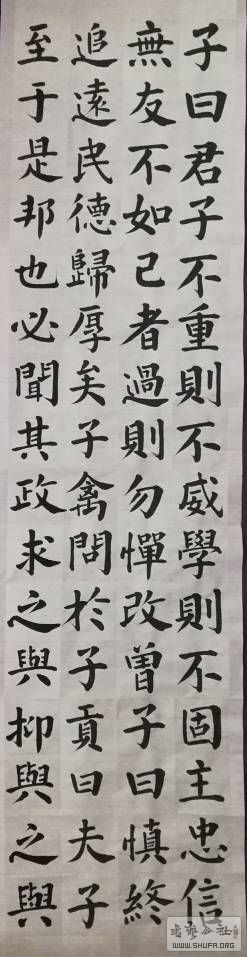 子曰君子不重則不威學則不固主忠信
無友不如己者過則勿憚改曾子曰慎終
追遠民德歸厚矣子禽問於子貢曰夫子
至于是邦也必聞其政求之與抑與之與
WWW.SHUFA.ORG